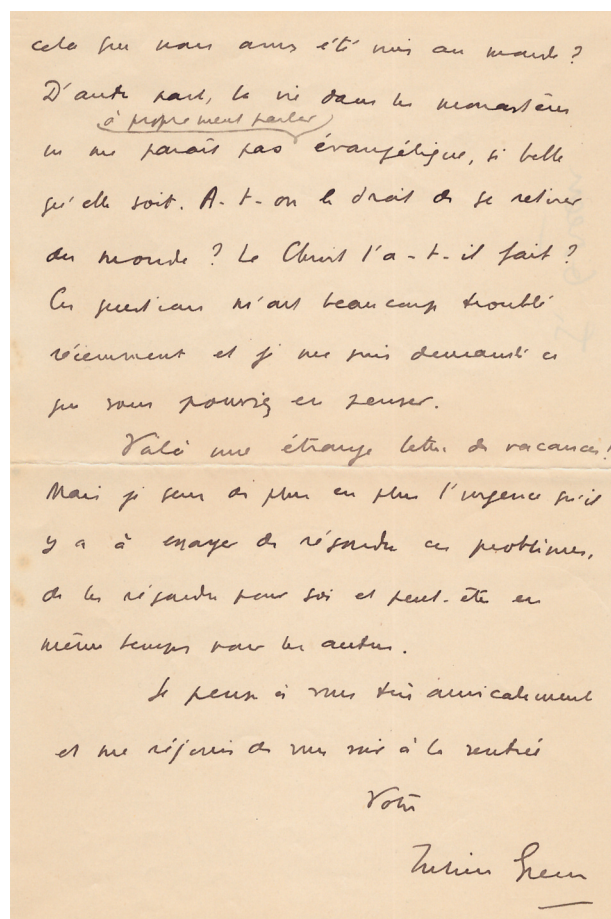 cela que nous avons été mis au monde ?
D'autre part, la vie dans les monastères
à proprement parler
ne me paraît pas évangélique, si belle
qu'elle soit. A-t-on le droit de se retirer
du monde ? Le Christ l'a-t-il fait ?
Ces questions m'ont beaucoup troublé
récemment et je me suis demandé ce
que vous pouviez en penser.
Voilà une étrange lettre de vacances !
Mais je sens de plus en plus l'urgence qu'il
y a à essayer de résoudre ces problèmes,
de les résoudre pour soi et peut-être en
même temps pour les autres.
Je pense à vous très amicalement
et me réjouis de vous voir à la rentrée
Votre
Julien Green